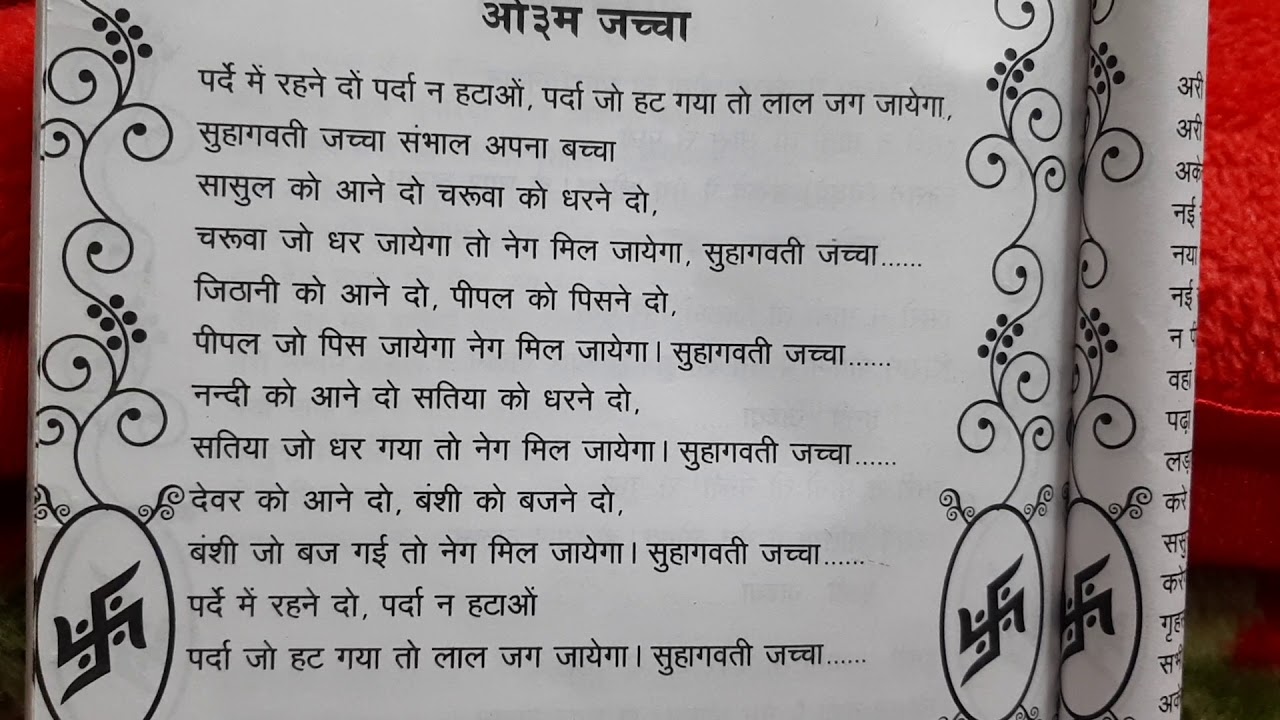 ओ३म जच्चा
पर्दे में रहने दों पर्दा न हटाओं, पर्दा जो हट गया तो लाल जग जायेगा,
सुहागवती जच्चा संभाल अपना बच्चा
सासुल को आने दो चरूवा को धरने दो,
चरूवा जो धर जायेगा तो नेग मिल जायेगा, सुहागवती जंच्चा......
जिठानी को आने दो, पीपल को पिसने दो,
पीपल जो पिस जायेगा नेग मिल जायेगा। सुहागवती जच्चा......
नन्दी को आने दो सतिया को धरने दो,
सतिया जो धर गया तो नेग मिल जायेगा। सुहागवती जच्चा......
देवर को आने दो, बंशी को बजने दो,
बंशी जो बज गई तो नेग मिल जायेगा। सुहागवती जच्चा......
पर्दे में रहने दो, पर्दा न हटाओं
पर्दा जो हट गया तो लाल जग जायेगा। सुहागवती जच्चा......
अरी
अरी
नई
नया
नई
न
वहां
करे